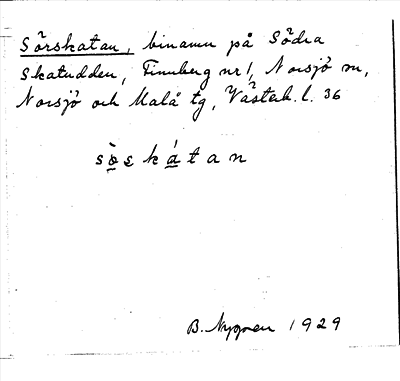 Sörskatan, binamn på Södra
Skatudden, Finnberg nr 1, Norsjö sn,
Norsjö och Malå tg, Västerb. l. 36
sö̀skátan
B. Nygren 1929